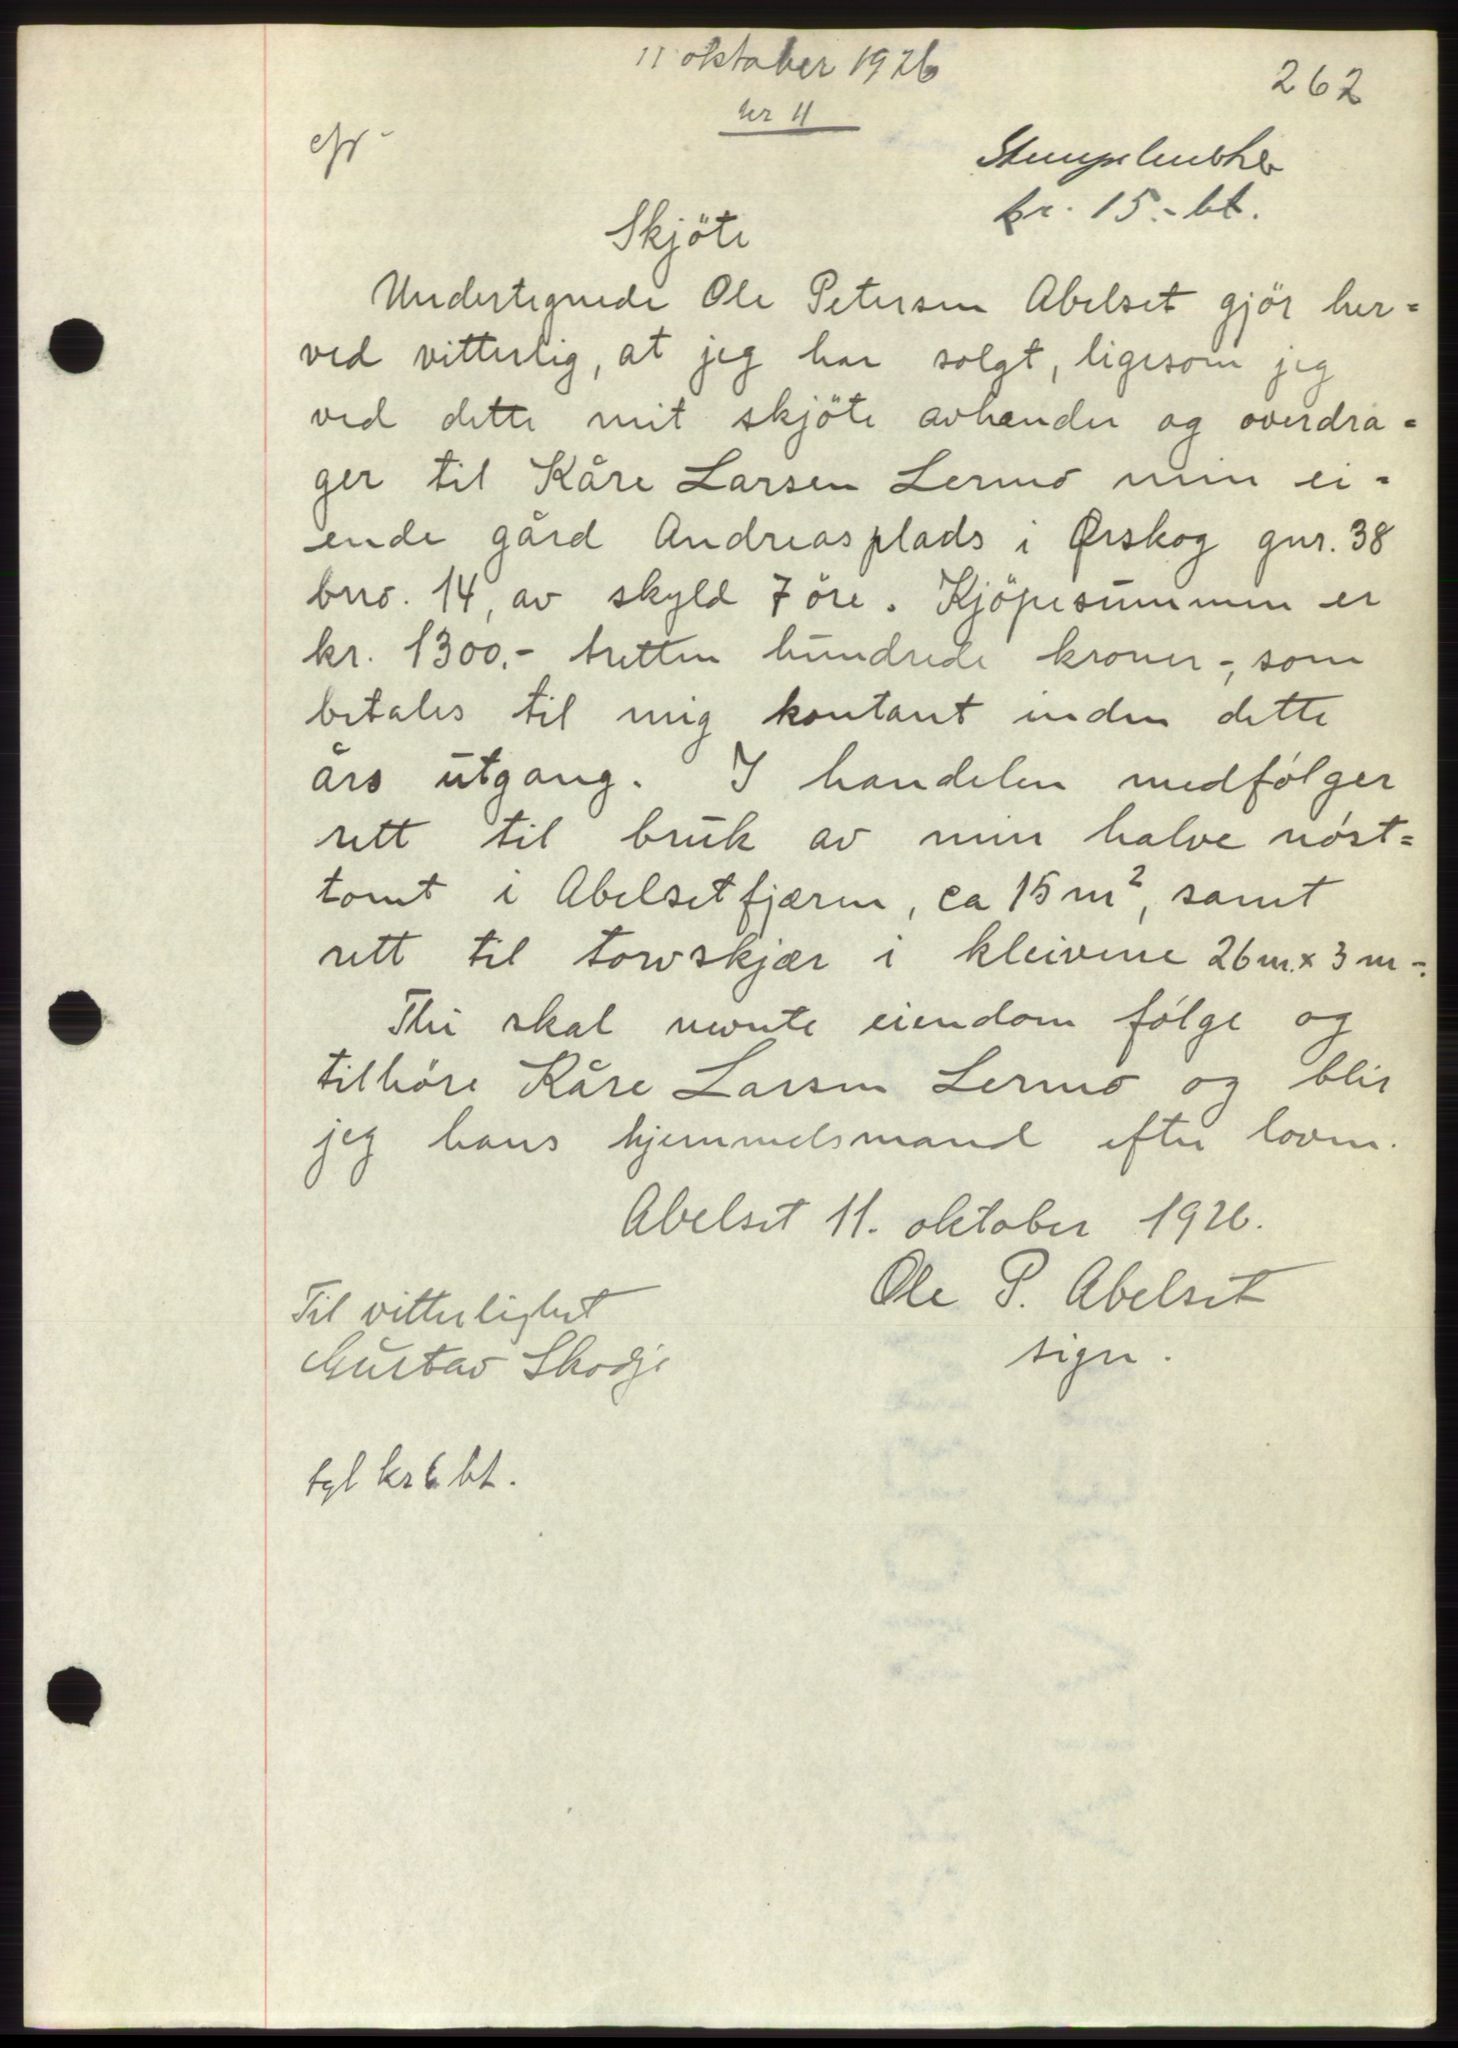 11 oktober 1926
262
nr 11
kr. 15.- bt.
Skjöte
Undertegnede Ole Petersen Abelset gjör her=
ved vitterlig, at jeg har solgt, ligesom jeg
ved dette mit skjöte avhender og overdra=
ger til Kåre Larsen Lermo min ei=
ende gård Andreasplads i Ørskog gnr. 38
bno. 14, av skyld 7 öre. Kjöpesummen er
kr. 1300.- tretten hundrede kroner -, som
betales til mig kontant inden dette
års utgang. I handelen medfölger
rett til bruk av min halve nöst=
tomt i Abelsetfjæren, ca 15 m², samt
rett til torvskjær i kleivene 26 m. x 3 m -.
Thi skal nevnte eiendom fölge og
tilhöre Kåre Larsen Lermo og blir
jeg hans hjemmelsmand efter loven.
Abelset 11. oktober 1926.
Ole P. Abelset
sign.
Til vitterlighet
Gustav Skodje
tgl kr 6 bt.